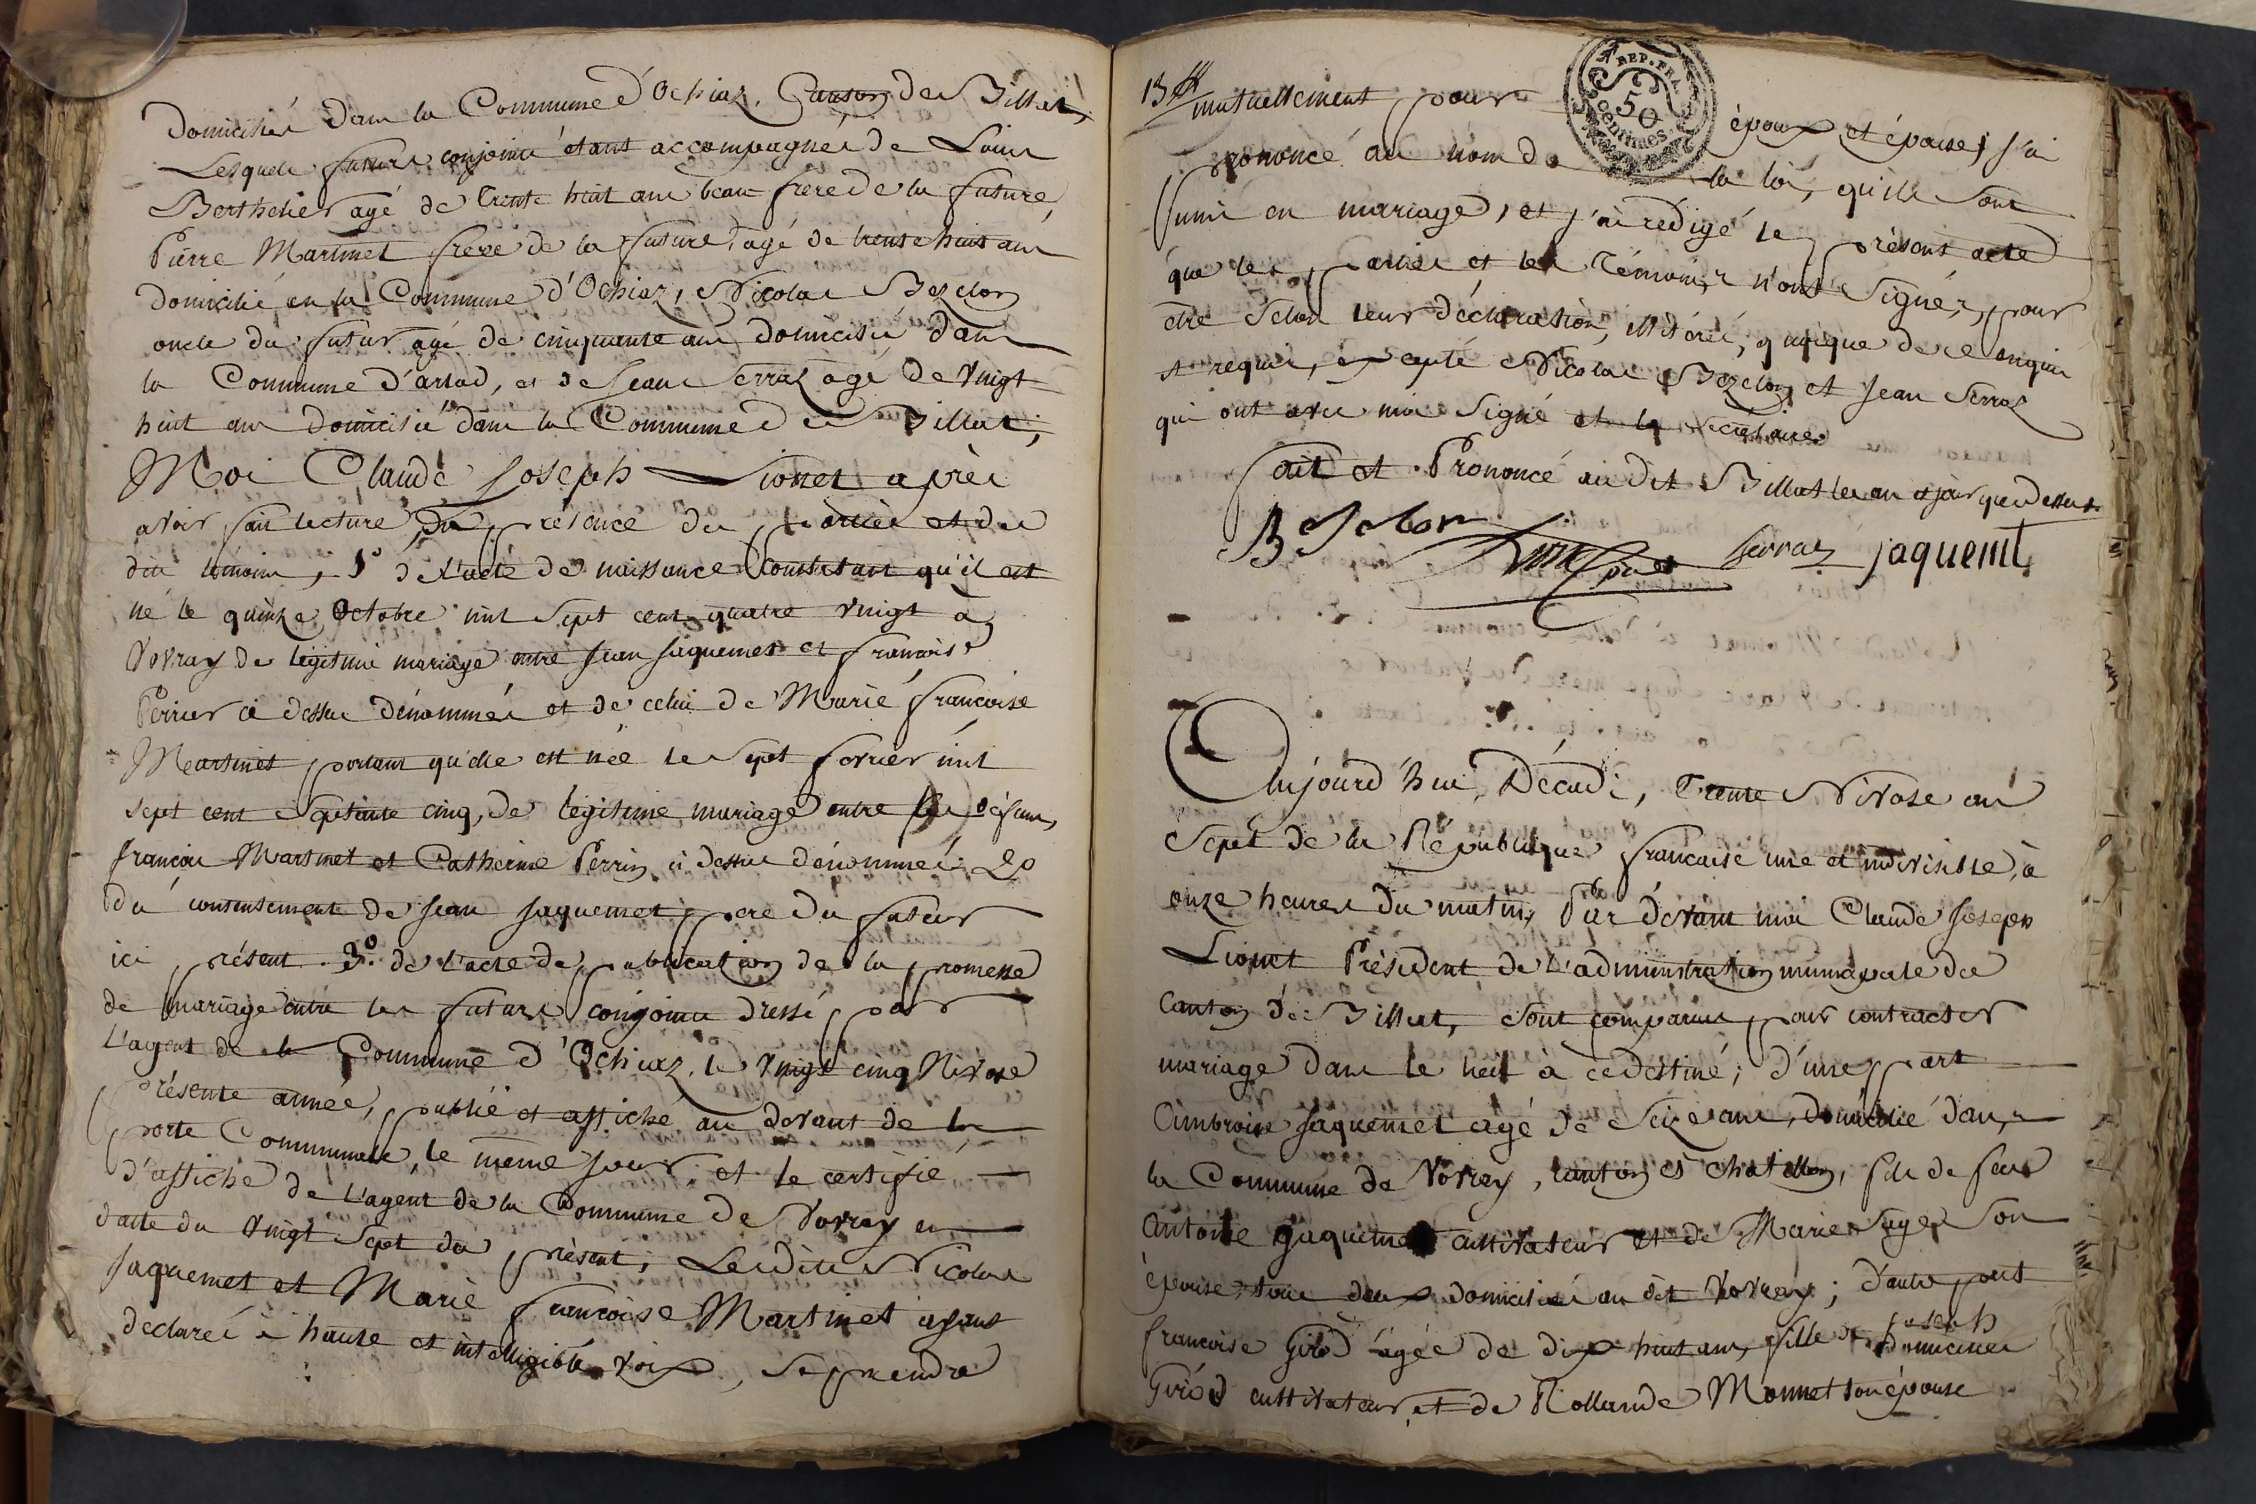 Domiciliés dans la Commune d'Ochiaz, Canton de Billiat,
Lesquels futurs conjoints étant accompagnés de Louis
Berthelier agé de trente huit ans beau frere de la future,
Pierre Martinet frere de la future, agé de trente huit ans
domicilié en la Commune d'Ochiaz, Nicolas Bezelon
oncle du futur agé de cinquante ans domicilié dans
la Commune d'arlod, et de Jean Serraz agé de vingt
huit ans domicilié dans la Commune de Billiat;
Moi Claude Joseph Lionet après
avoir fait lecture en présence des parties et des
dits témoins, 1° de l'acte de naissance constatant qu'il est
né le quinze Octobre mil sept cent quatre vingt à
Vovray de légitime mariage entre Jean Jaquemet et Françoise
Perrier ci dessus dénommés et de celui de Marie françoise
Martinet portant qu'elle est née le sept fevrier mil
sept cent septante cinq, de légitime mariage entre les défunts
françois Martinet et Catherine Perrin ci dessus dénommés 2o
du consentement de Jean Jaquemet pere du futur
ici présent. 3.° de l'acte de publication de la promesse
de mariage entre les futurs conjoints dressé par
L'agent de la Commune d'Ochiaz, le vingt cinq Nivose
présente année, publié et affiché au devant de la
porte Commune le même jour, et le certifié
d'affiche de l'agent de la Commune de Vovray en
date du vingt sept du présent; Lesdits Nicolas
Jaquemet et Marie françoise Martinet ayant
declarés à haute et intelligible voix, se prendre
13
mutuellement pour époux et épouse, j'ai
prononcé au nom de la loi, qu'ils sont
unis en mariage, et j'ai rédigé le présent acte
que les parties et les témoins n'ont signés, pour
être selon leur déclaration, illitérés, quoique de ce enquis
et requis, excepté Nicolas Bezelon et Jean Serraz
qui ont avec moi signé et le secretaire
fait et Prononcé au dit Billiat les an et jour que dessus
REP. FRA.
50
centimes
Bezelon Lionet Serraz jaquemt
Aujourd'hui, Décadi, trente Nivose an
Sept de la République française une et indivisible, à
onze heures du matin, Par devant moi Claude Joseph
Lionet Président de l'administration municipale du
Canton de Billiat, sont comparus pour contracter
mariage dans le lieu à ce destiné; d'une part
Ambroise Jaquemet agé de seize ans, domicilié dans
la Commune de Vovray, canton de chatillon, fils de feu
Antoine Jaquemet cultivateur et de Marie Sage son
épouse, tous deux domiciliés au dit Vovray; d'autre part
françoise Girod agée de dix huit ans, fille de Joseph domiciliés
Girod cultivateur, et de Rollande Monnet son épouse